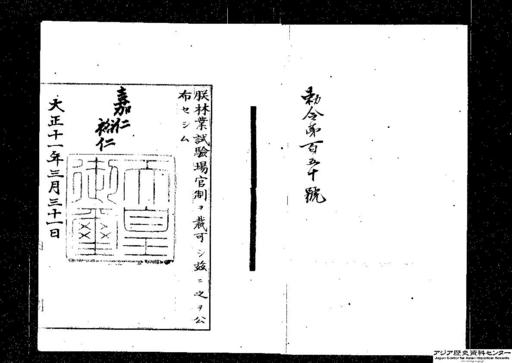 勅令第百五十號
朕林業試驗場官制ヲ裁可シ茲ニ之ヲ公
布セシム
嘉仁
裕仁
天皇御璽
大正十一年三月三十一日
アジア歴史資料センター
Japan Center for Asian Historical Records